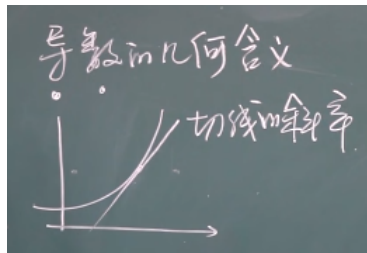 导数的几何含义
切线的斜率